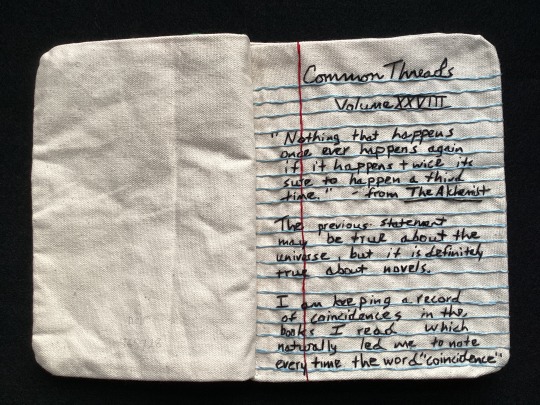 Common Threads
Volume XXVIII
"Nothing that happens
once ever happens again
if it happens twice its
sure to happen a third
time." - from The Alchemist
The previous statement
may be true about the
universe, but it is definitely
true about novels.
I am keeping a record
of coincidences in the
books I read which
naturally led me to note
every time the word "coincidence"